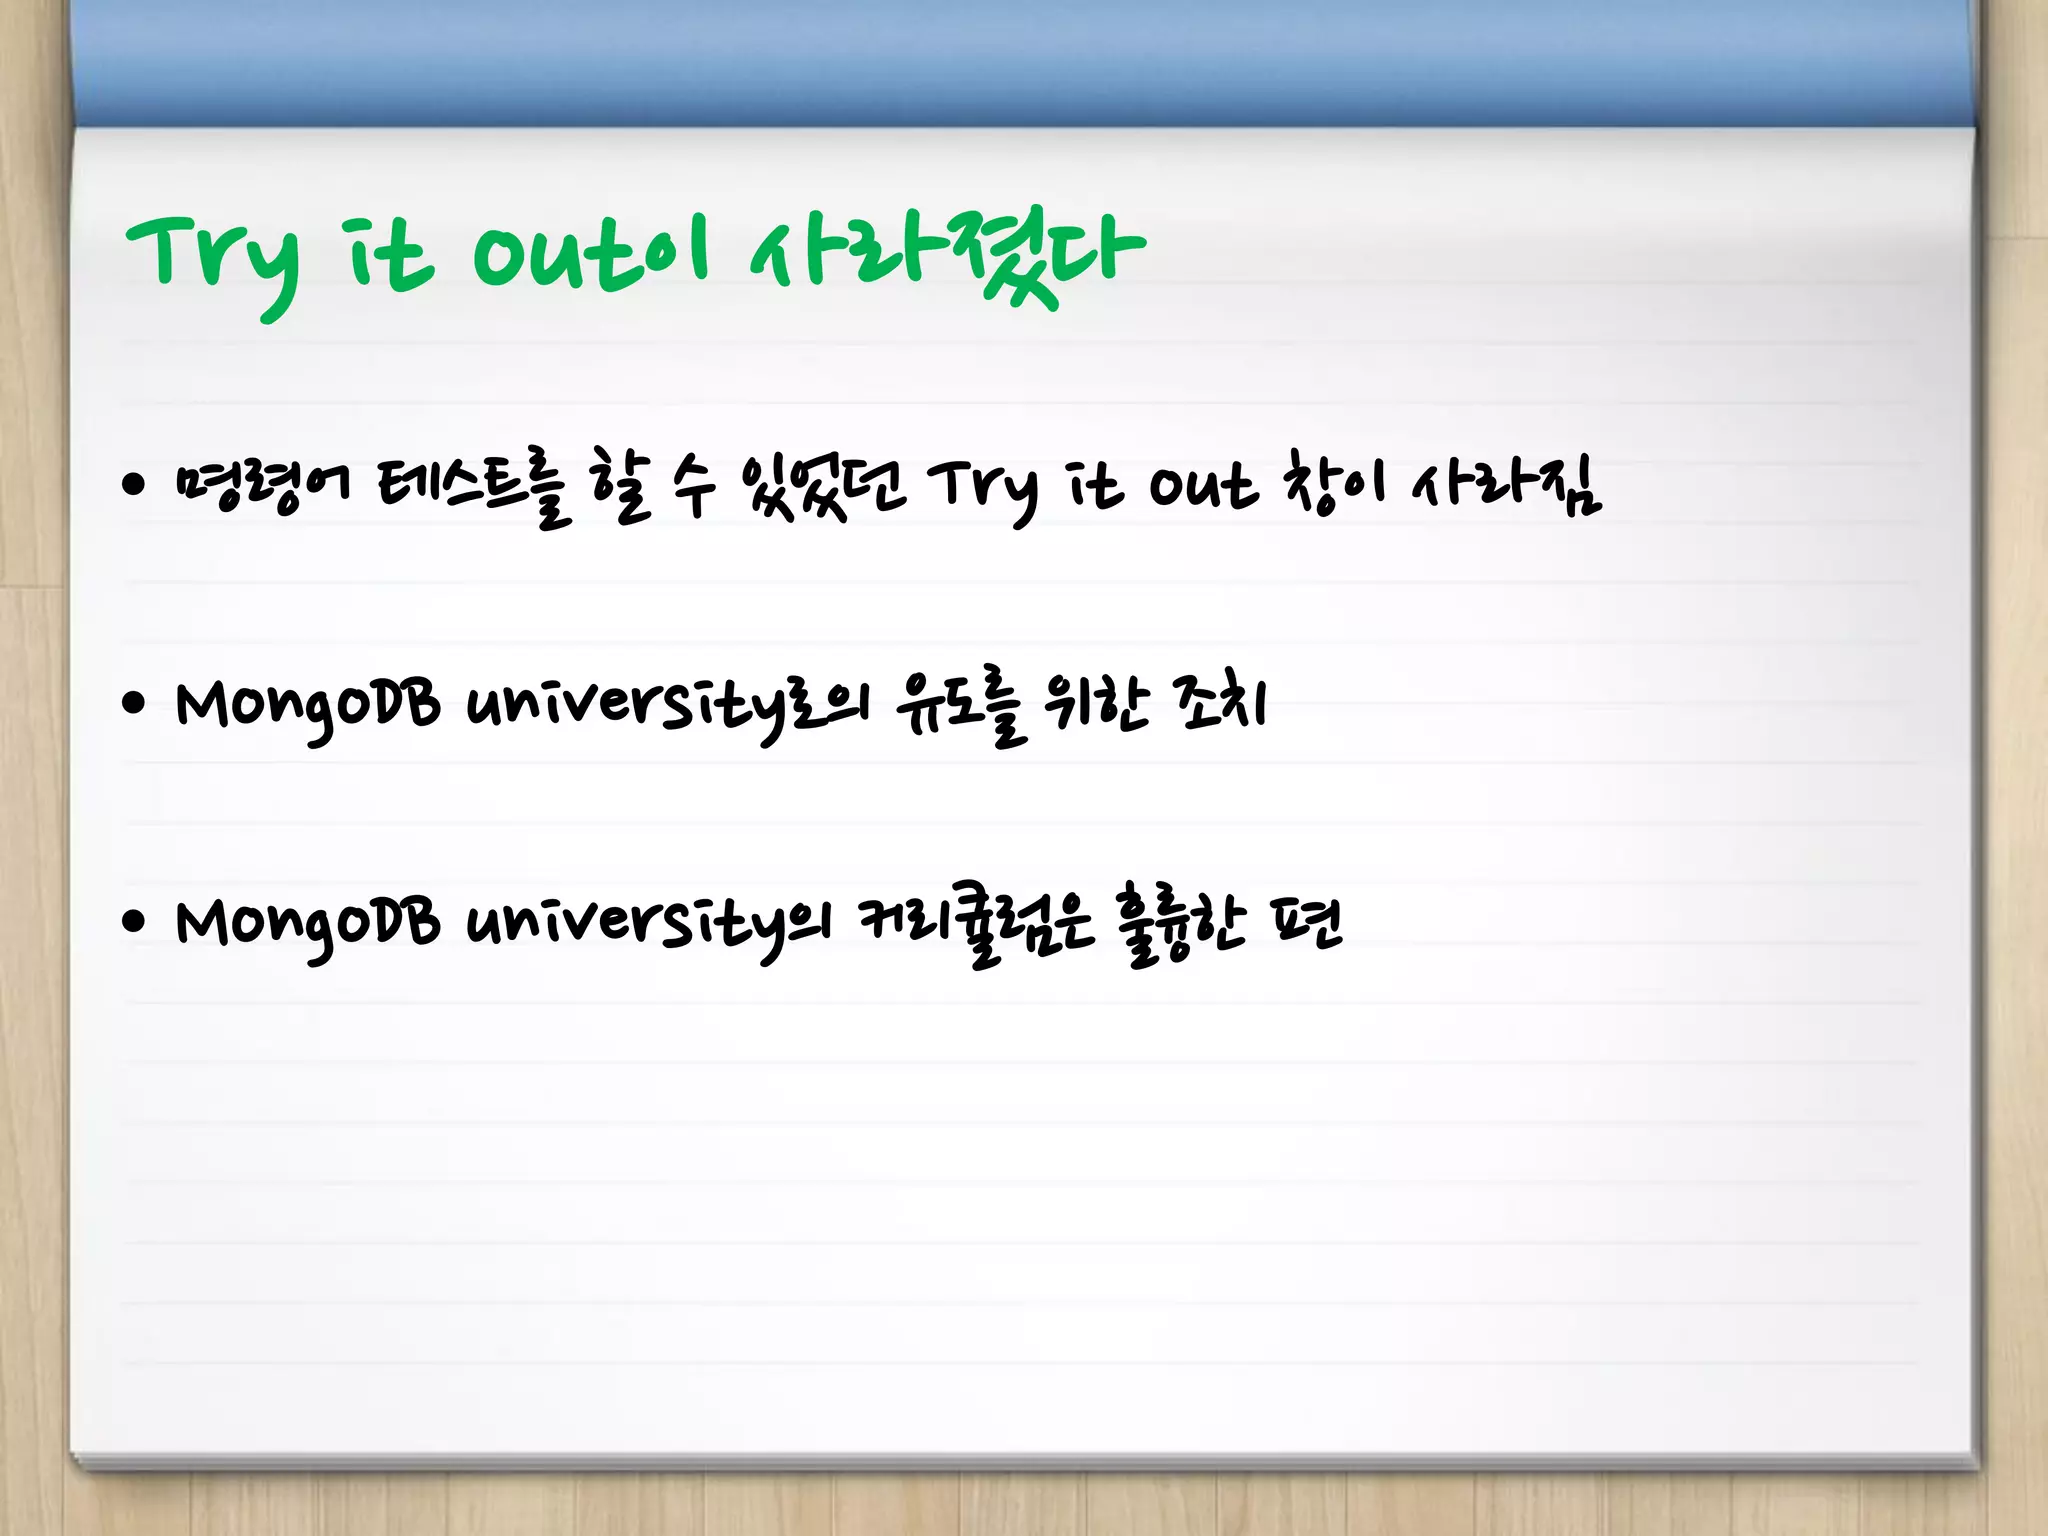 Try it out이 사라졌다
• 명령어 테스트를 할 수 있었던 Try it out 창이 사라짐
• MongoDB university로의 유도를 위한 조치
• MongoDB university의 커리큘럼은 훌륭한 편